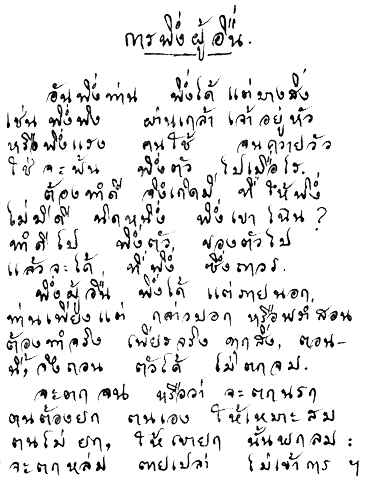 การพึ่งผู้อื่น.
อันพึ่งท่าน พึ่งได้ แต่บางสิ่ง
เช่น พึ่งพิง ผ่านเกล้า เจ้าอยู่หัว
หรือพึ่งแรง คนใช้ จนควายวัว
ใช่ จะพ้น พึ่งตัว ไปเมื่อไร.
ต้องทำดี จึงเกิดมี ที่ให้พึ่ง
ไม่มีดี นิดหนึ่ง พึ่งเขาไฉน?
ทำดีไป พึ่งตัว ของตัวไป
แล้วจะได้ ที่พึ่ง ซึ่งถาวร.
พึ่งผู้อื่น พึ่งได้ แต่ภายนอก,
ท่านเพียงแต่ กล่าวบอก หรือพร่ำสอน
ต้องทำจริง เพียรจริง ทุกสิ่ง, ตอน-
นี้, จึงถอน ตัวได้ ไม่ตกจม.
จะตกจน หรือว่า จะตกนรก
ตนต้องยก ตนเอง ให้เหมาะสม
ตนไม่ยก, ให้เขายก นั้นพกลม:
จะตกหล่ม ตายเปล่า ไม่เข้าการ ฯ